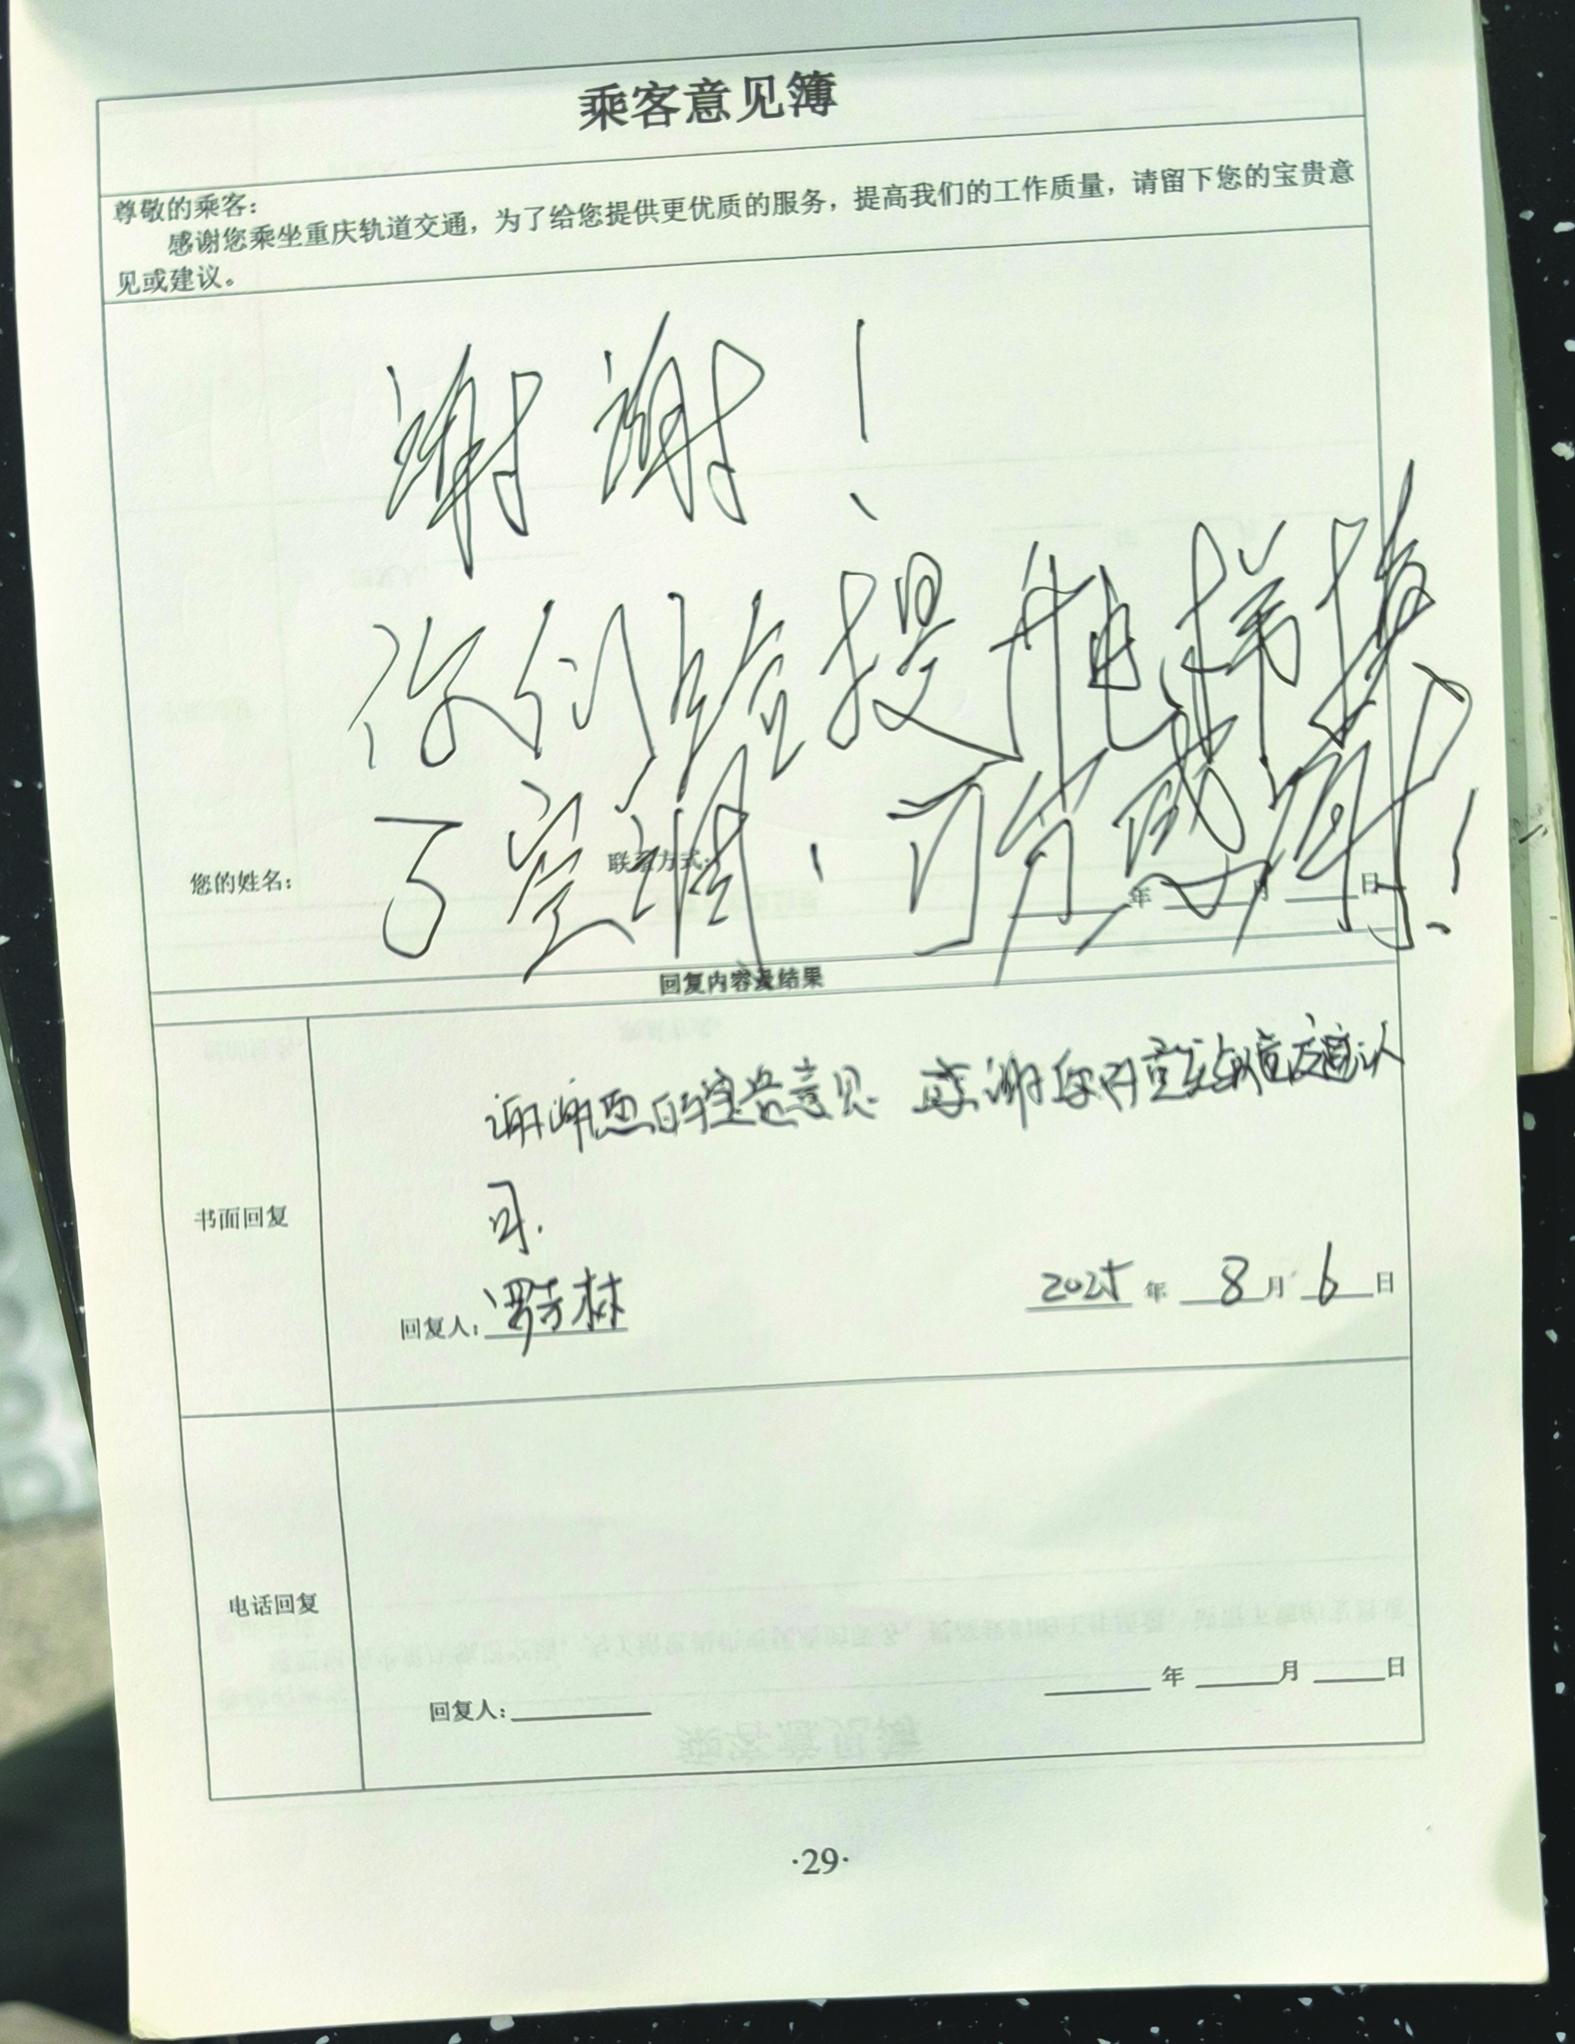 乘客意见簿
尊敬的乘客：
感谢您乘坐重庆轨道交通，为了给您提供更优质的服务，提高我们的工作质量，请留下您的宝贵意
见或建议。
谢谢！
你们给提升电梯接
了空调，万分感谢！
您的姓名： 联系方式： 年 月 日
回复内容及结果
书面回复
谢谢您的宝贵意见 感谢您对
司.
回复人： 2025 年 8 月 6 日
电话回复
回复人： 年 月 日
·29·